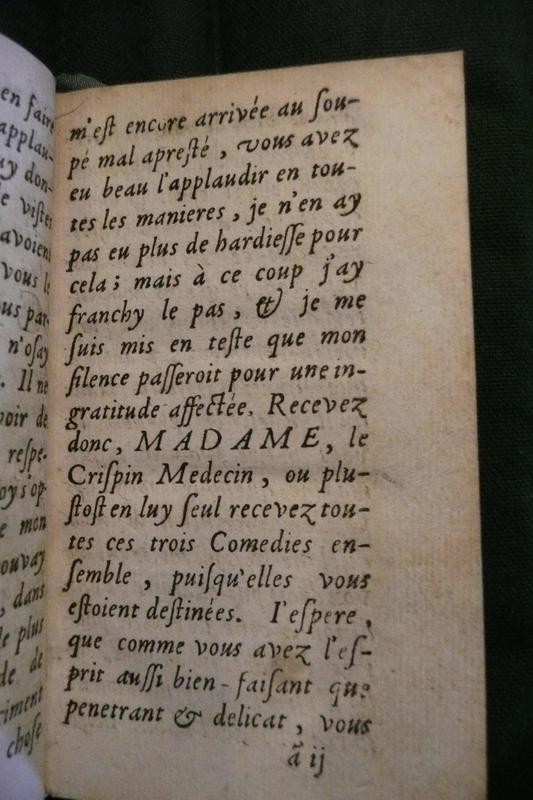 en faire
applau-
uy don-
le vister
avoient
vous l
ous par-
n'oſay
. Il ne
voir de
reſpe-
oy s'op-
e mon
ouvay
, dans
le plus
de de
riment
choſe
m'eſt encore arrivée au ſou-
pé mal apreſté, vous avez
eu beau l'applaudir en tou-
tes les manieres, je n'en ay
pas eu plus de hardieſſe pour
cela; mais à ce coup j'ay
franchy le pas, & je me
ſuis mis en teſte que mon
ſilence paſſeroit pour une in-
gratitude affectée. Recevez
donc, MADAME, le
Criſpin Medecin, ou plu-
ſtoſt en luy ſeul recevez tou-
tes ces trois Comedies en-
ſemble, puiſqu'elles vous
eſtoient deſtinées. I'eſpere,
que comme vous avez l'eſ-
prit auſſi bien-faiſant que
penetrant & delicat, vous
ã ij